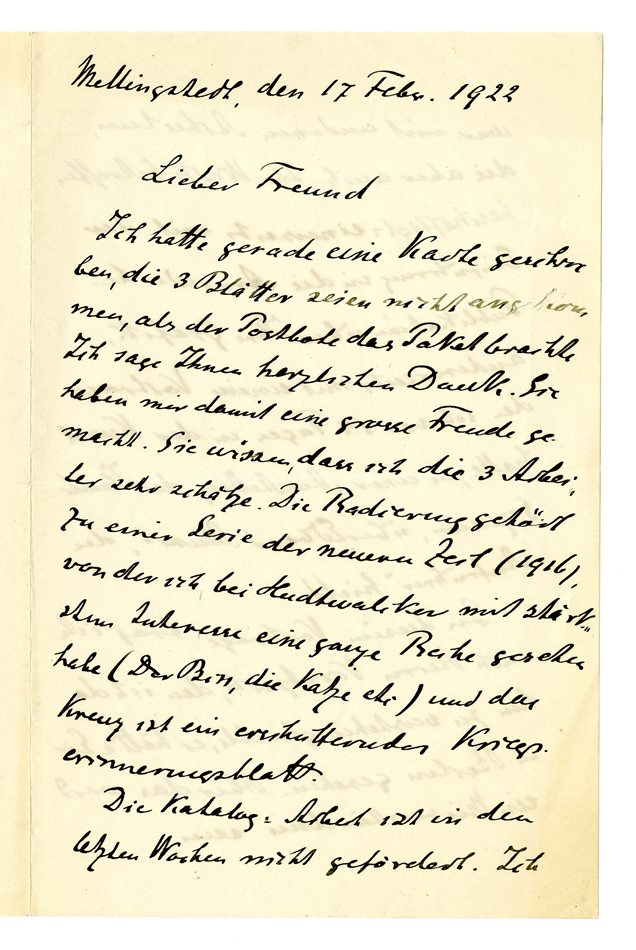 Mellingstedt, den 17 Febr. 1922
Lieber Freund
Ich hatte gerade eine Karte geschrie
ben, die 3 Blätter seien nicht angekom
men, als der Postbote das Paket brachte
Ich sage Ihnen herzlichen Dank. Sie
haben mir damit eine grosse Freude ge
macht. Sie wissen, dass ich die 3 Arbei,
ter sehr schätze. Die Radierung gehört
zu einer Serie der neueren Zeit (1916),
von der ich bei Hudtwalker mit stärk-
stem Interesse eine ganze Reihe gesehen
habe (Der Biss, die Katze etc) und das
Kreuz ist ein erschütterndes Kriegs-
erinnerungsblatt.
Die Katalog= Arbeit ist in den
letzten Wochen nicht gefördert. Ich